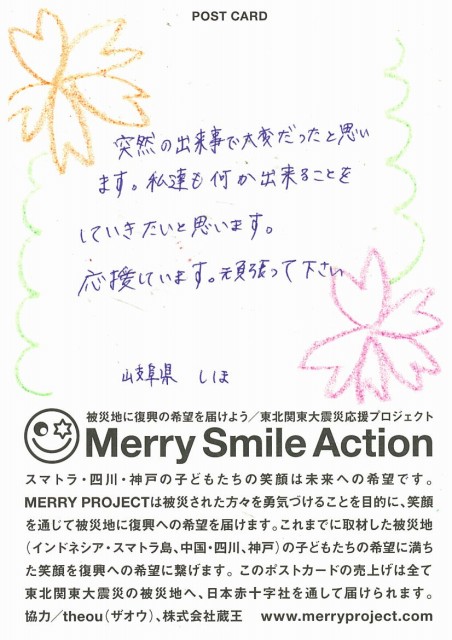 POST CARD
突然の出来事で大変だったと思い
ます。私達も何か出来ることを
していきたいと思います。
応援しています。頑張って下さい
岐阜県 しほ
被災地に復興の希望を届けよう／東北関東大震災応援プロジェクト
Merry Smile Action
スマトラ・四川・神戸の子どもたちの笑顔は未来への希望です。
MERRY PROJECTは被災された方々を勇気づけることを目的に、笑顔
を通じて被災地に復興への希望を届けます。これまでに取材した被災地
（インドネシア・スマトラ島、中国・四川、神戸）の子どもたちの希望に満ち
た笑顔を復興への希望に繋げます。このポストカードの売上げは全て
東北関東大震災の被災地へ、日本赤十字社を通して届けられます。
協力／theou（ザオウ）、株式会社蔵王 www.merryproject.com